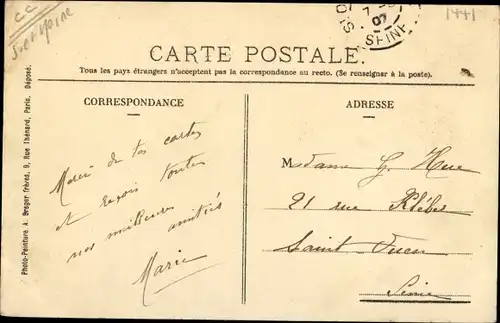 CC
1441
SEINE
CARTE POSTALE.
Tous les pays étrangers n'acceptent pas la correspondance au recto. (Se renseigner à la poste).
CORRESPONDANCE
Merci de tes cartes
et reçois toutes
nos meilleures amitiés
Marie
ADRESSE
Madame G. Hue
21 rue Kléber
Saint Ouen
Seine
Photo-Peinture A. Breger frères, 9, Rue Thénard, Paris. Déposé.